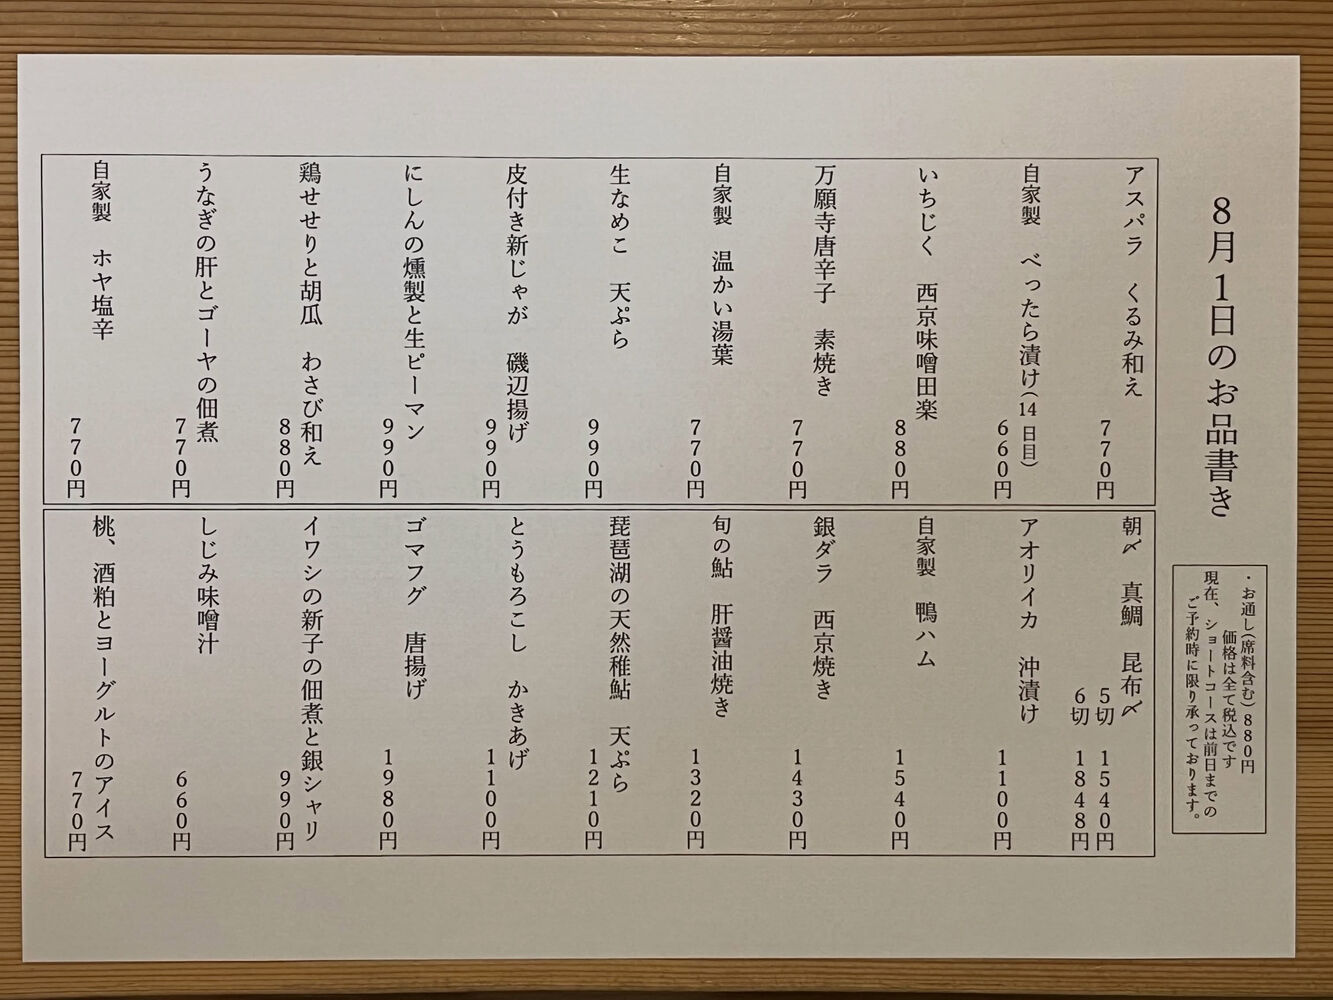 8月1日のお品書き
・お通し(席料含む)880円
価格は全て税込です
現在、ショートコースは前日までの
ご予約時に限り承っております。
アスパラ くるみ和え
770円
自家製 べったら漬け(14日目)
660円
いちじく 西京味噌田楽
880円
万願寺唐辛子 素焼き
770円
自家製 温かい湯葉
770円
生なめこ 天ぷら
990円
皮付き新じゃが 磯辺揚げ
990円
にしんの燻製と生ピーマン
990円
鶏せせりと胡瓜 わさび和え
880円
うなぎの肝とゴーヤの佃煮
770円
自家製 ホヤ塩辛
770円
朝〆 真鯛 昆布〆
5切 1540円
6切 1848円
アオリイカ 沖漬け
1100円
自家製 鴨ハム
1540円
銀ダラ 西京焼き
1430円
旬の鮎 肝醤油焼き
1320円
琵琶湖の天然稚鮎 天ぷら
1210円
とうもろこし かきあげ
1100円
ゴマフグ 唐揚げ
1980円
イワシの新子の佃煮と銀シャリ
990円
しじみ味噌汁
660円
桃、酒粕とヨーグルトのアイス
770円